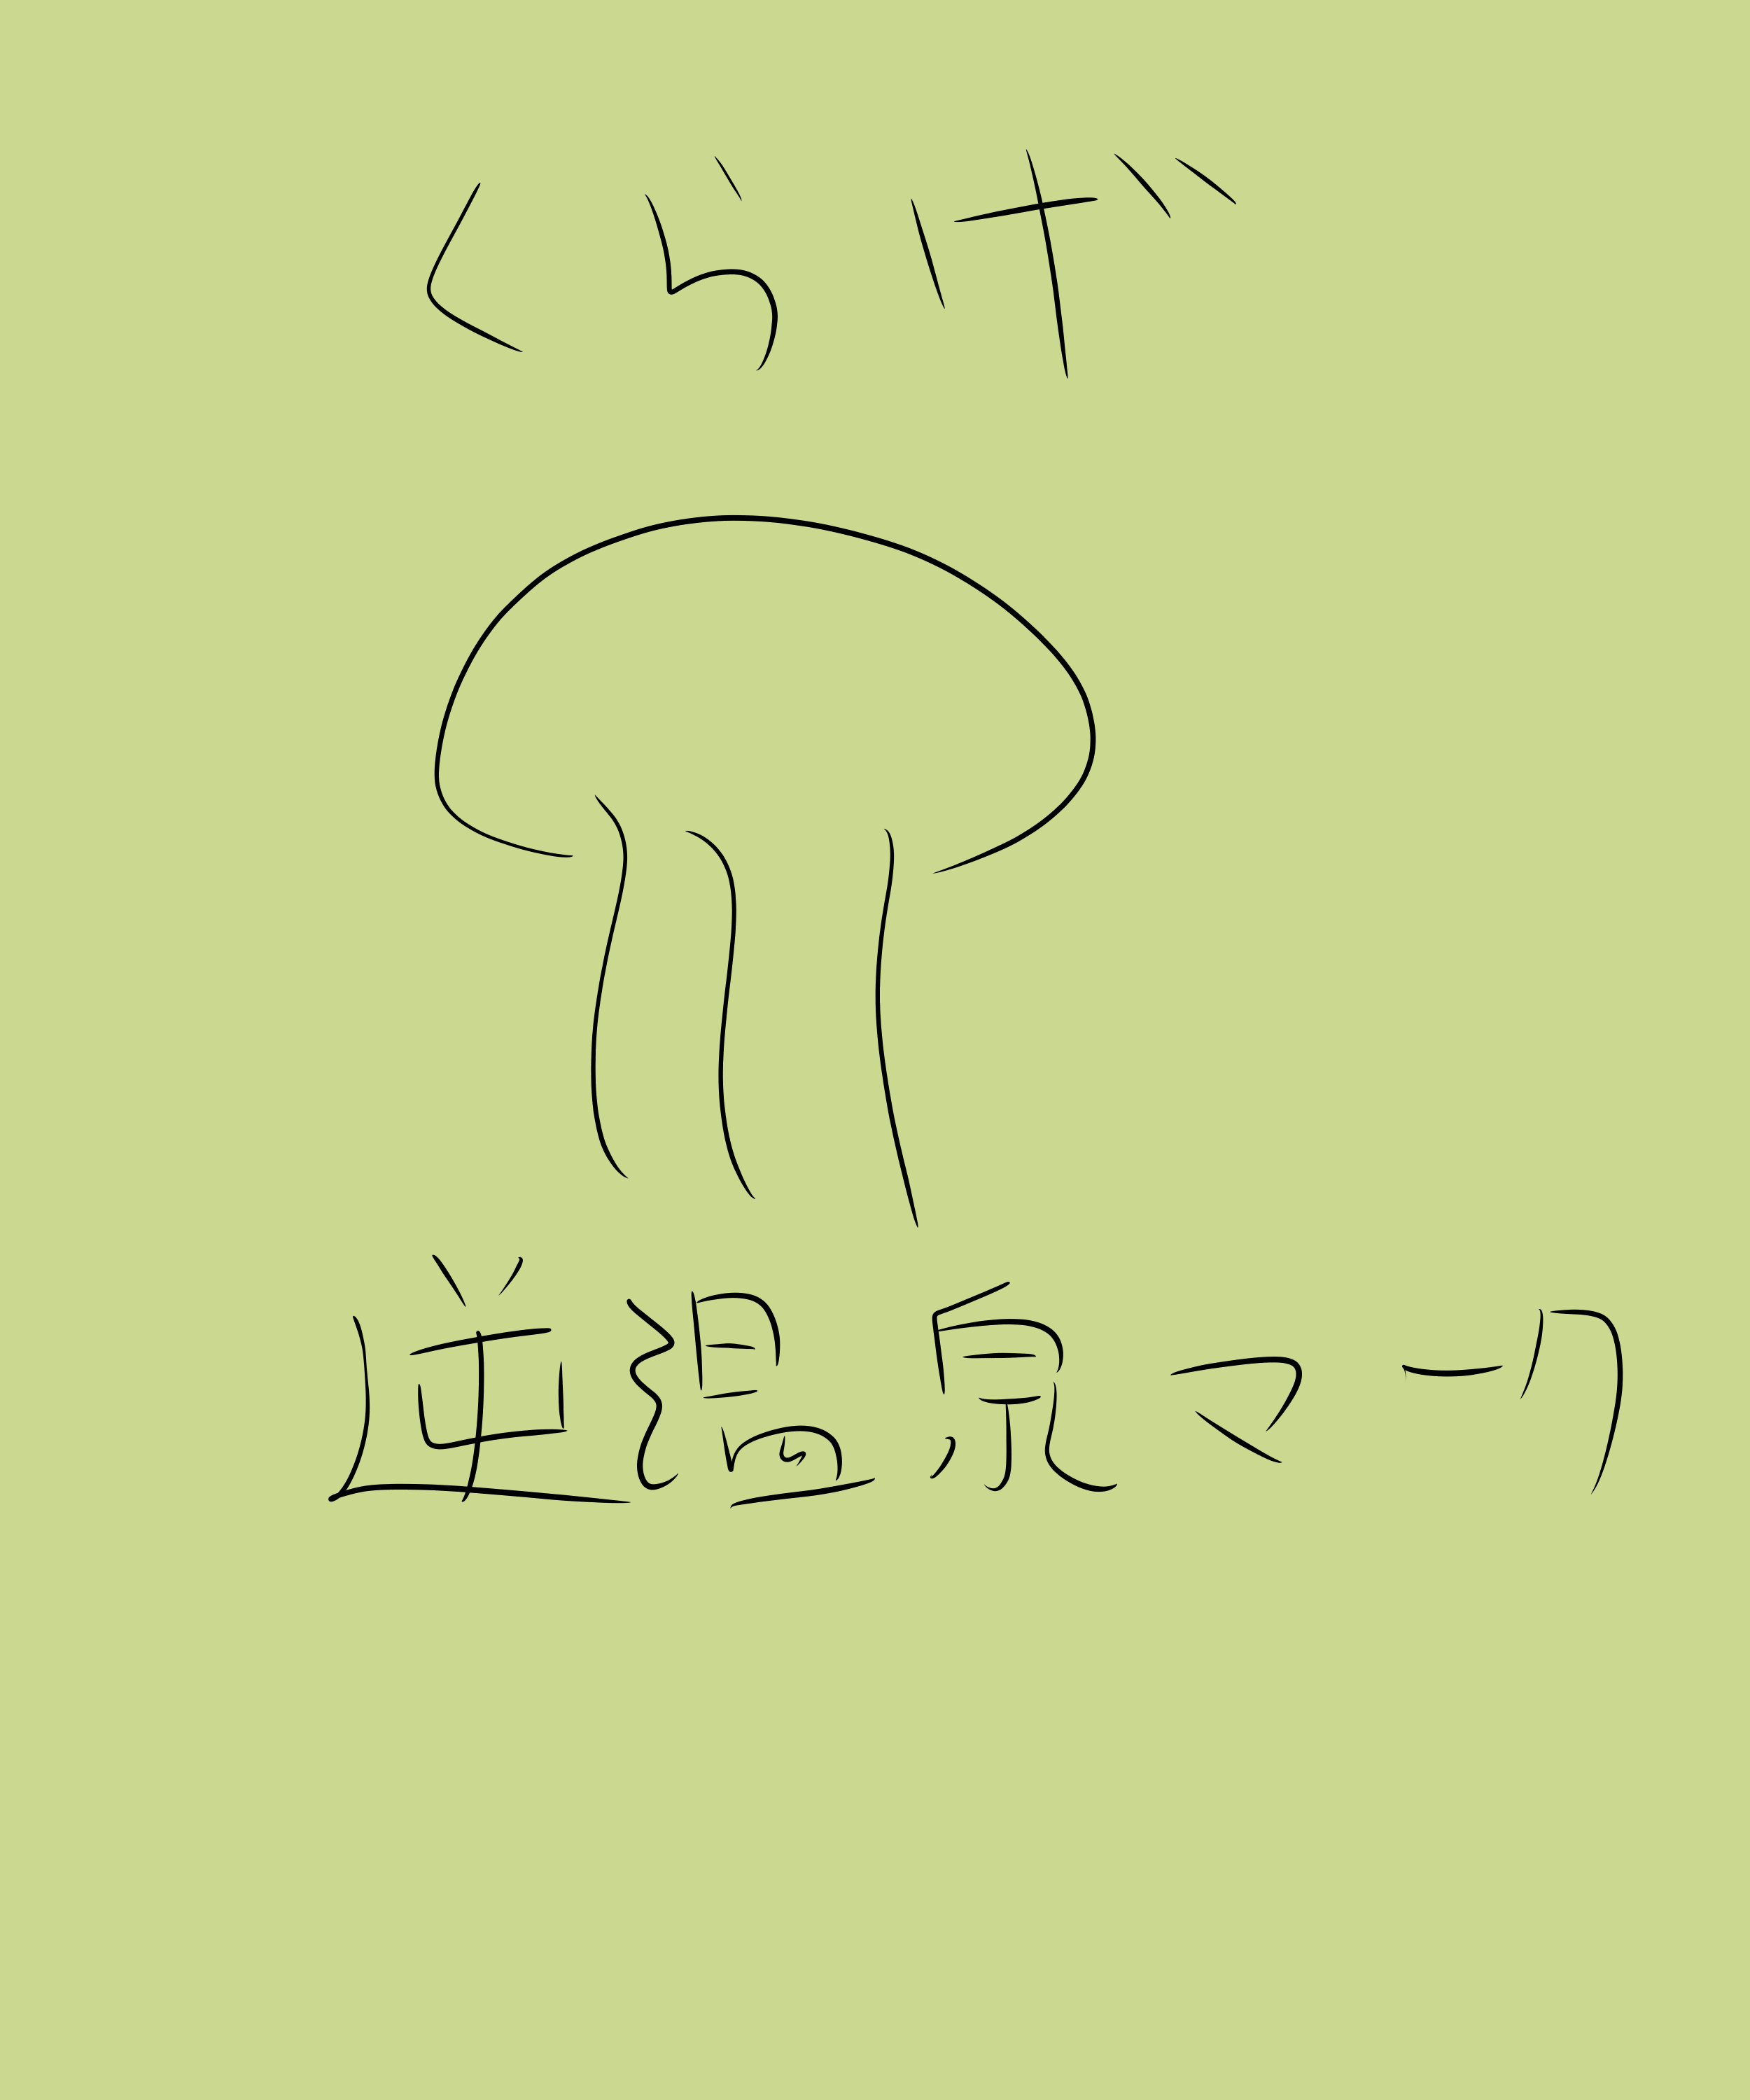 くらげ
逆温泉マーク